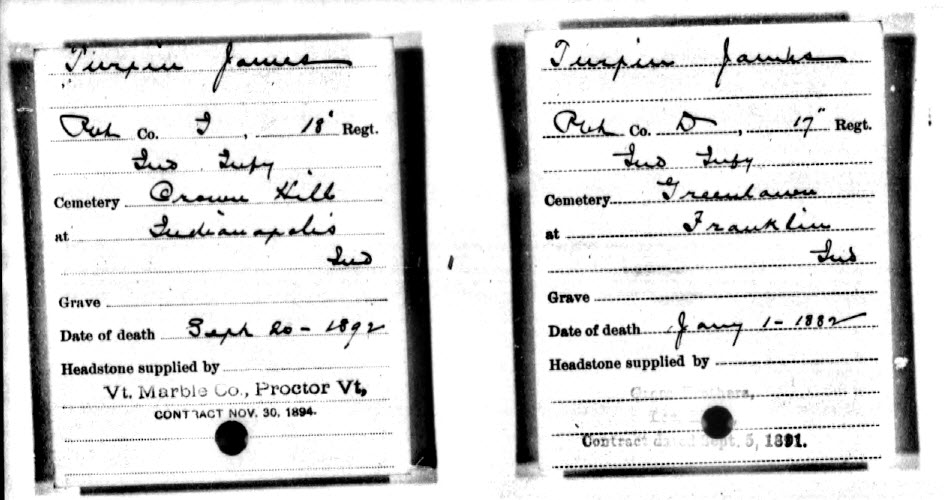 Turpin James
Pvt Co. I, 18' Regt.
Ind Infy
Cemetery Crown Hill
at Indianapolis
Ind
Grave
Date of death Sept 20 - 1892
Headstone supplied by
Vt. Marble Co., Proctor Vt,
CONTRACT NOV. 30, 1894.
Turpin James
Pvt Co. D, 17" Regt.
Ind Infy
Cemetery Greenlawn
at Franklin
Ind
Grave
Date of death Jany 1 - 1882
Headstone supplied by
Contract dated Sept. 5, 1891.